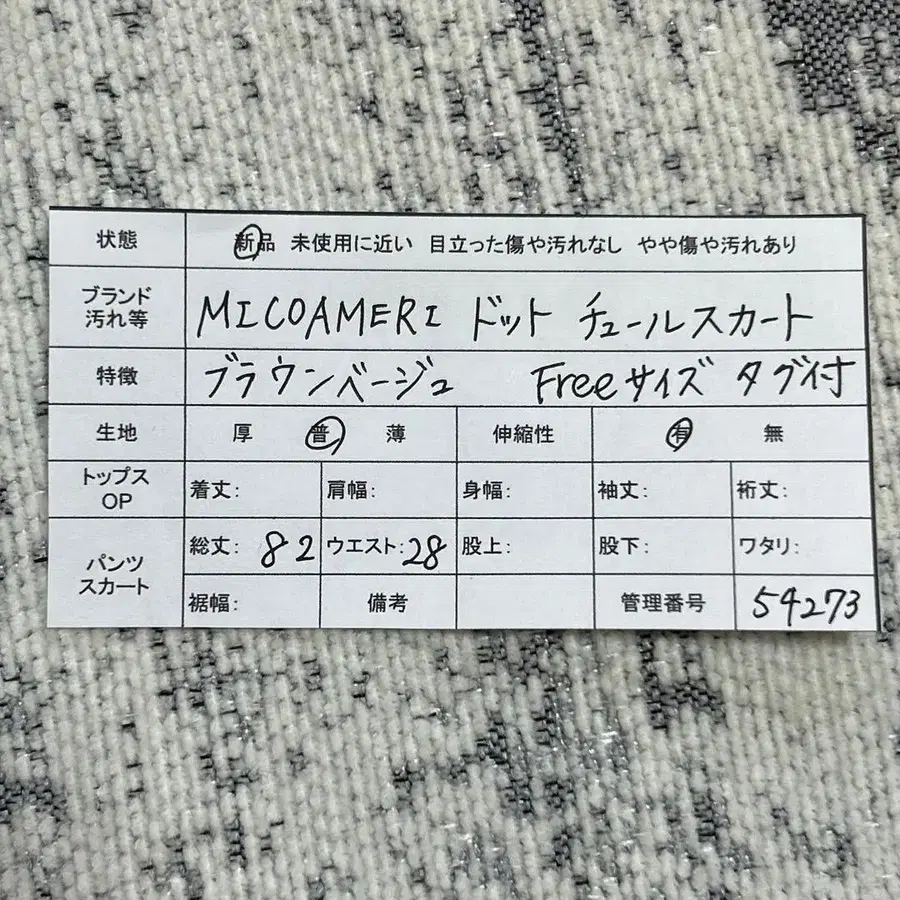 状態 新品 未使用に近い 目立った傷や汚れなし やや傷や汚れあり
ブランド
汚れ等 MICOAMERI ドット チュールスカート
特徴 ブラウンベージュ Freeサイズ タグ付
生地 厚 普 薄 伸縮性 有 無
トップス
OP 着丈: 肩幅: 身幅: 袖丈: 裄丈:
パンツ
スカート 総丈: 82 ウエスト: 28 股上: 股下: ワタリ:
裾幅: 備考 管理番号 54273